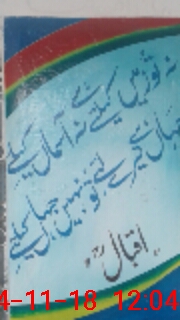 نہ تو زمیں کیلئے ہے نہ آسماں کیلئے
جہاں ہے تیرے لئے تو نہیں جہاں کیلئے
اقبال
4-11-18 12:04